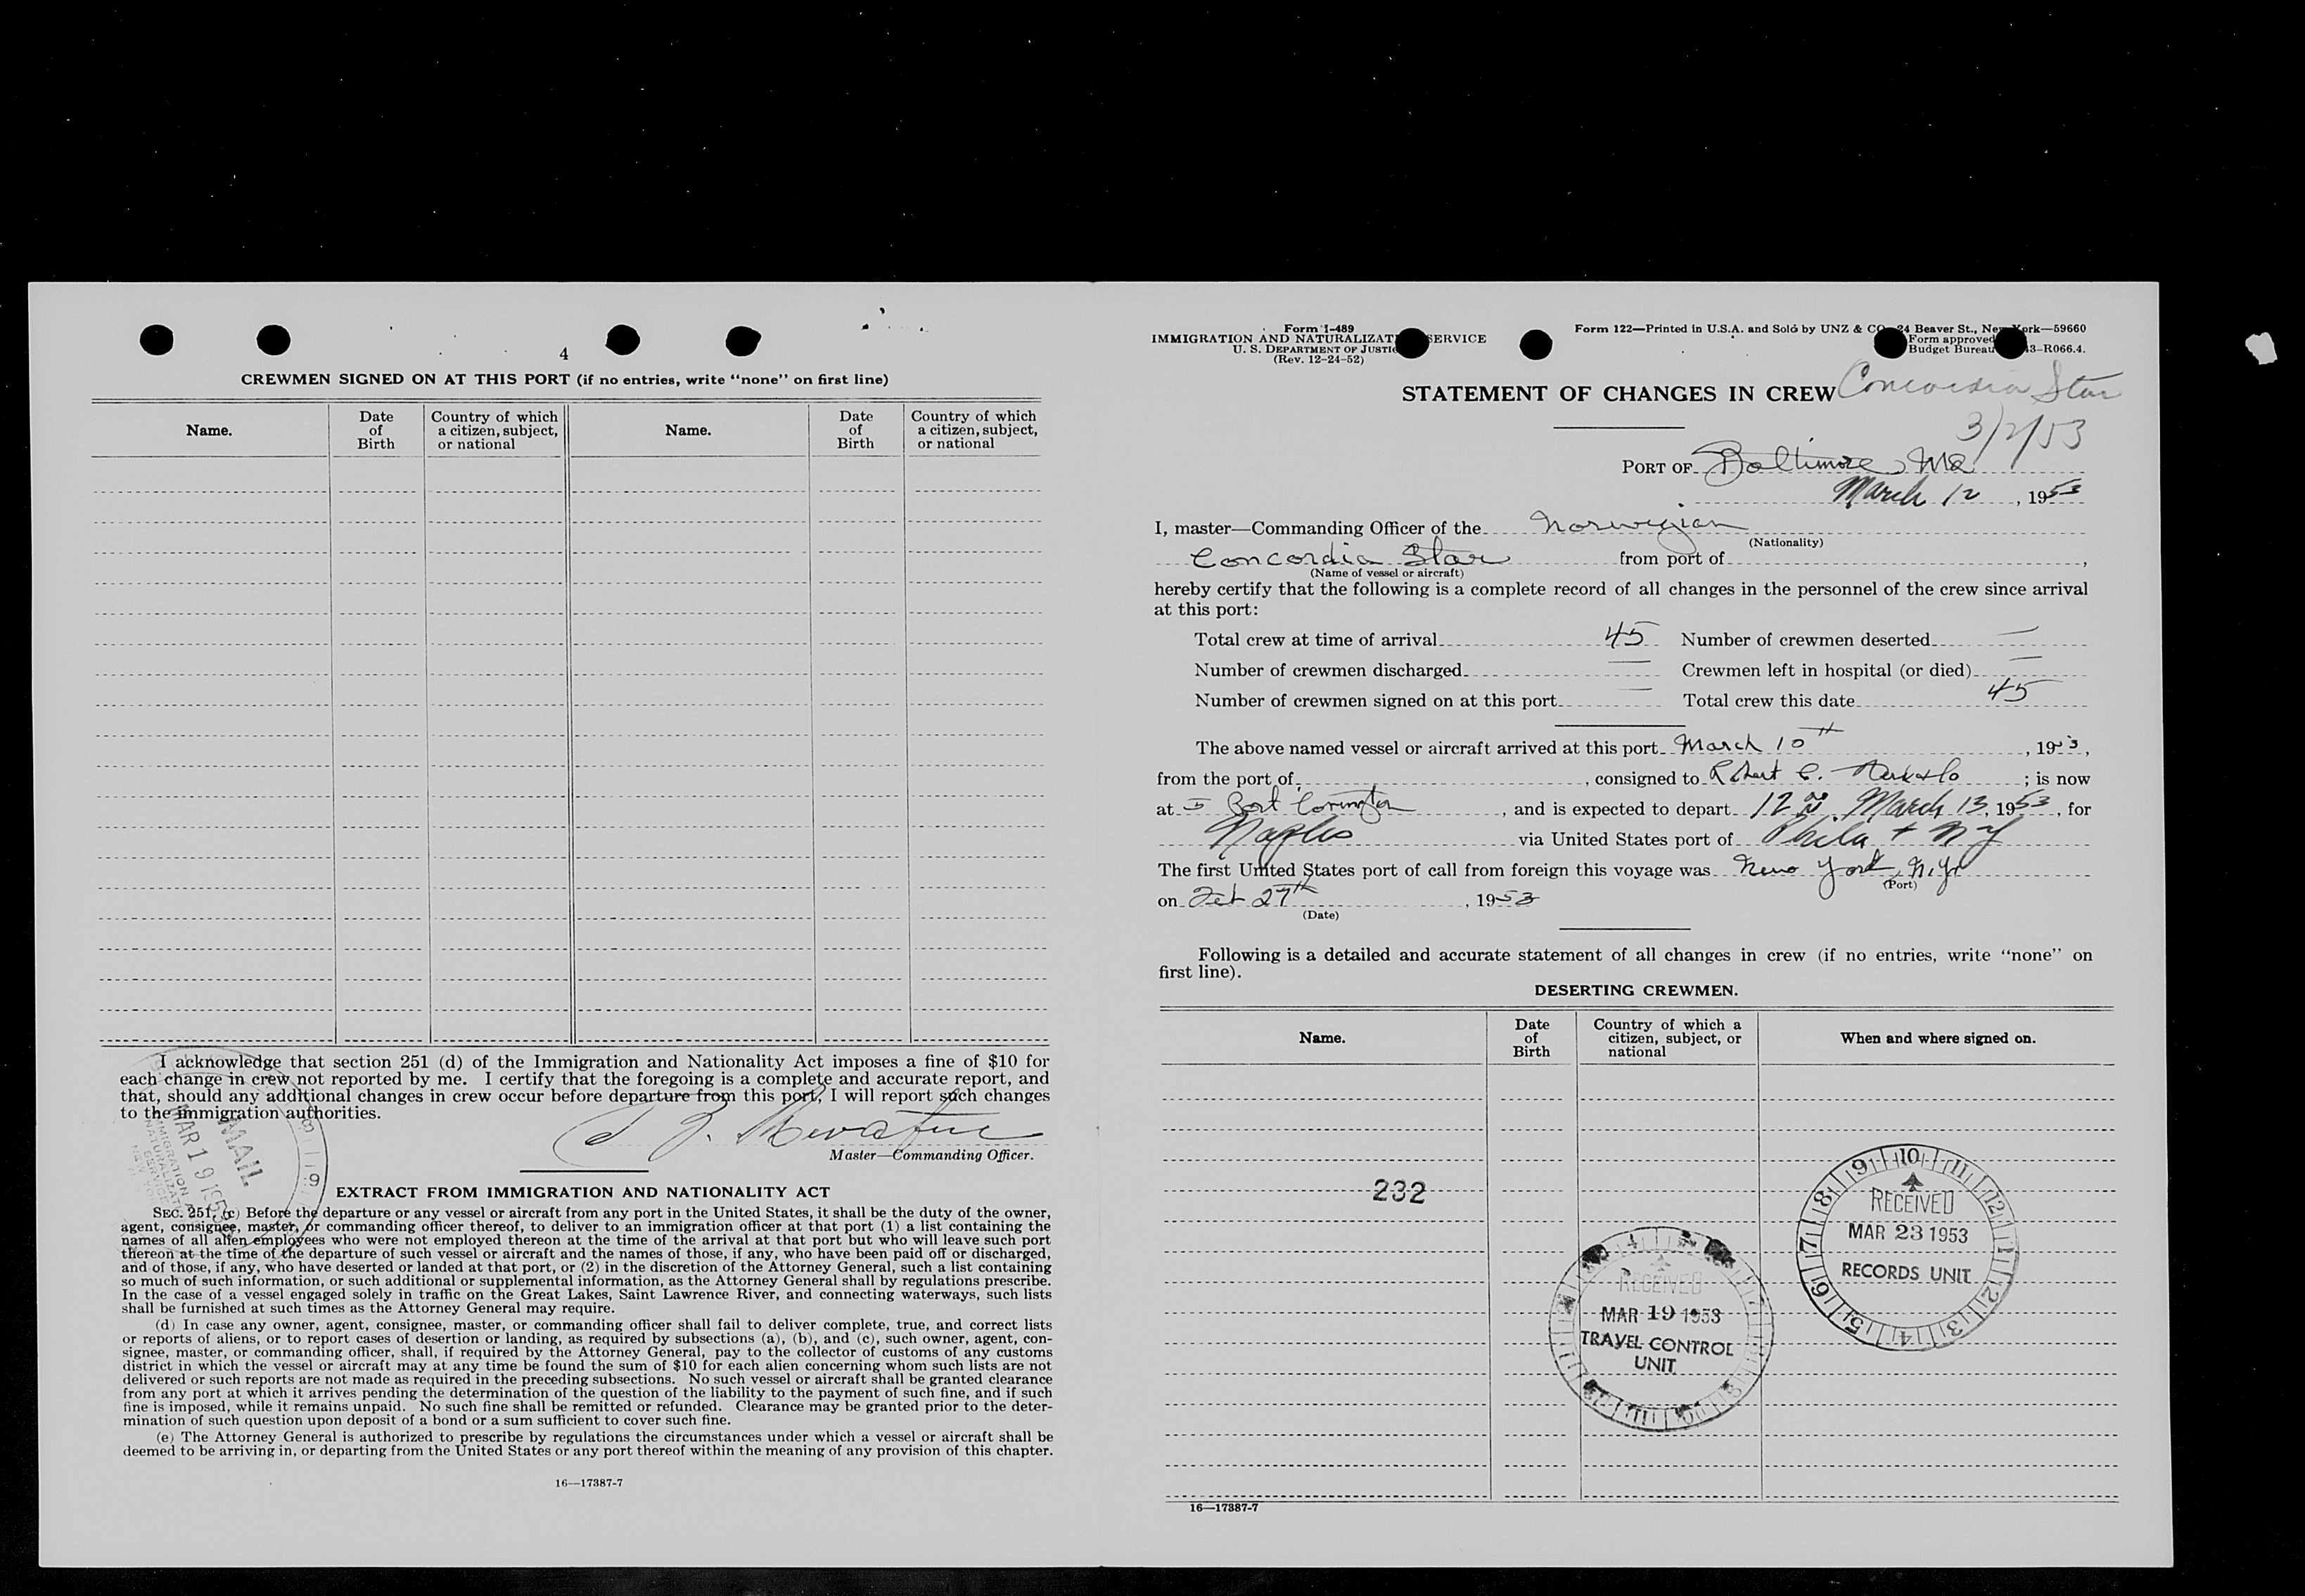 4
CREWMEN SIGNED ON AT THIS PORT (if no entries, write “none” on first line)
Name.
Date
of
Birth
Country of which
a citizen, subject,
or national
Name.
Date
of
Birth
Country of which
a citizen, subject,
or national
I acknowledge that section 251 (d) of the Immigration and Nationality Act imposes a fine of $10 for
each change in crew not reported by me. I certify that the foregoing is a complete and accurate report, and
that, should any additional changes in crew occur before departure from this port, I will report such changes
to the immigration authorities.
Master—Commanding Officer.
MAIL
MAR 19 1953
EXTRACT FROM IMMIGRATION AND NATIONALITY ACT
SEC. 251. (c) Before the departure or any vessel or aircraft from any port in the United States, it shall be the duty of the owner,
agent, consignee, master, or commanding officer thereof, to deliver to an immigration officer at that port (1) a list containing the
names of all alien employees who were not employed thereon at the time of the arrival at that port but who will leave such port
thereon at the time of the departure of such vessel or aircraft and the names of those, if any, who have been paid off or discharged,
and of those, if any, who have deserted or landed at that port, or (2) in the discretion of the Attorney General, such a list containing
so much of such information, or such additional or supplemental information, as the Attorney General shall by regulations prescribe.
In the case of a vessel engaged solely in traffic on the Great Lakes, Saint Lawrence River, and connecting waterways, such lists
shall be furnished at such times as the Attorney General may require.
(d) In case any owner, agent, consignee, master, or commanding officer shall fail to deliver complete, true, and correct lists
or reports of aliens, or to report cases of desertion or landing, as required by subsections (a), (b), and (c), such owner, agent, con-
signee, master, or commanding officer, shall, if required by the Attorney General, pay to the collector of customs of any customs
district in which the vessel or aircraft may at any time be found the sum of $10 for each alien concerning whom such lists are not
delivered or such reports are not made as required in the preceding subsections. No such vessel or aircraft shall be granted clearance
from any port at which it arrives pending the determination of the question of the liability to the payment of such fine, and if such
fine is imposed, while it remains unpaid. No such fine shall be remitted or refunded. Clearance may be granted prior to the deter-
mination of such question upon deposit of a bond or a sum sufficient to cover such fine.
(e) The Attorney General is authorized to prescribe by regulations the circumstances under which a vessel or aircraft shall be
deemed to be arriving in, or departing from the United States or any port thereof within the meaning of any provision of this chapter.
16—17387-7
Form I-489
IMMIGRATION AND NATURALIZAT SERVICE
U. S. DEPARTMENT OF JUSTIC
(Rev. 12-24-52)
Form 122—Printed in U.S.A. and Sold by UNZ & CO 24 Beaver St., New York—59660
Form approved
Budget Bureau 43-R066.4.
STATEMENT OF CHANGES IN CREW Concordia Star
3/2/53
PORT OF Baltimore, Md
March 12, 1953
I, master—Commanding Officer of the Norwegian
(Nationality)
Concordia Star from port of ,
(Name of vessel or aircraft)
hereby certify that the following is a complete record of all changes in the personnel of the crew since arrival
at this port:
Total crew at time of arrival 45 Number of crewmen deserted —
Number of crewmen discharged — Crewmen left in hospital (or died) —
Number of crewmen signed on at this port — Total crew this date 45
The above named vessel or aircraft arrived at this port March 10th, 1953,
from the port of , consigned to Robert C. ; is now
at Port Covington, and is expected to depart 12 March 13, 1953, for
Naples via United States port of Phila + NY
The first United States port of call from foreign this voyage was New York, N.Y.
(Port)
on Feb 27th, 1953
(Date)
Following is a detailed and accurate statement of all changes in crew (if no entries, write “none” on
first line).
DESERTING CREWMEN.
Name.
Date
of
Birth
Country of which a
citizen, subject, or
national
When and where signed on.
232
RECEIVED
MAR 23 1953
RECORDS UNIT
RECEIVED
MAR 19 1953
TRAVEL CONTROL
UNIT
16—17387-7